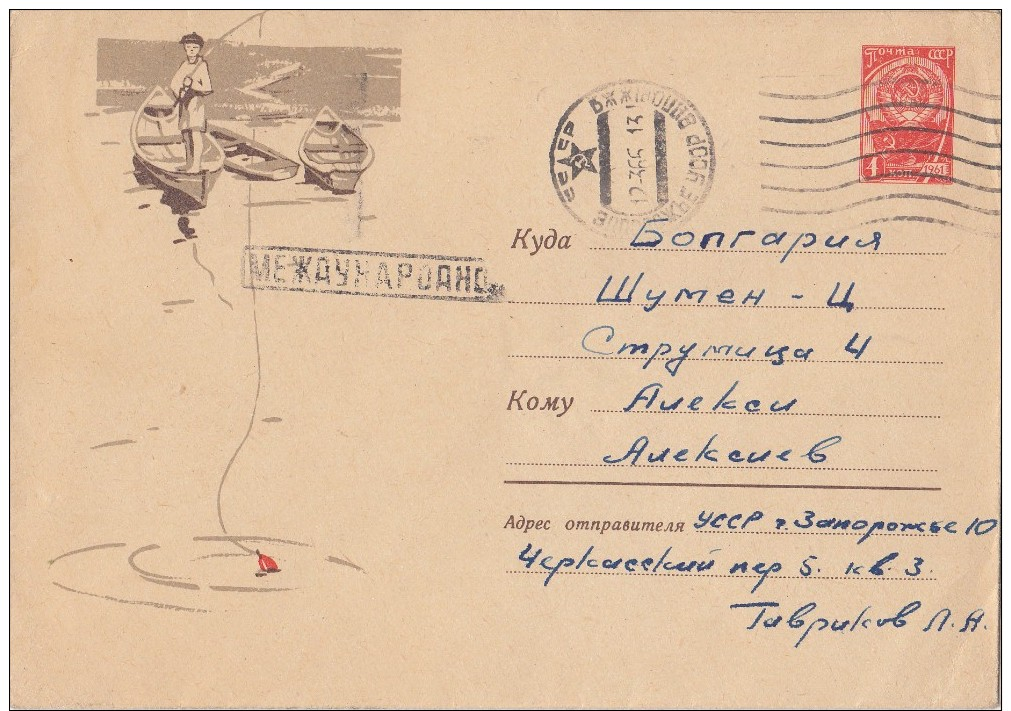 Почта СССР
4 коп 1961
СССР
12.366 13
МЕЖДУНАРОДНО
Куда Болгария
Шумен - Ц
Струмица 4
Кому Алекси
Алексиев
Адрес отправителя УССР г. Запорожье 10
Черкасский пер 5. кв. 3.
Гавриков Л.А.